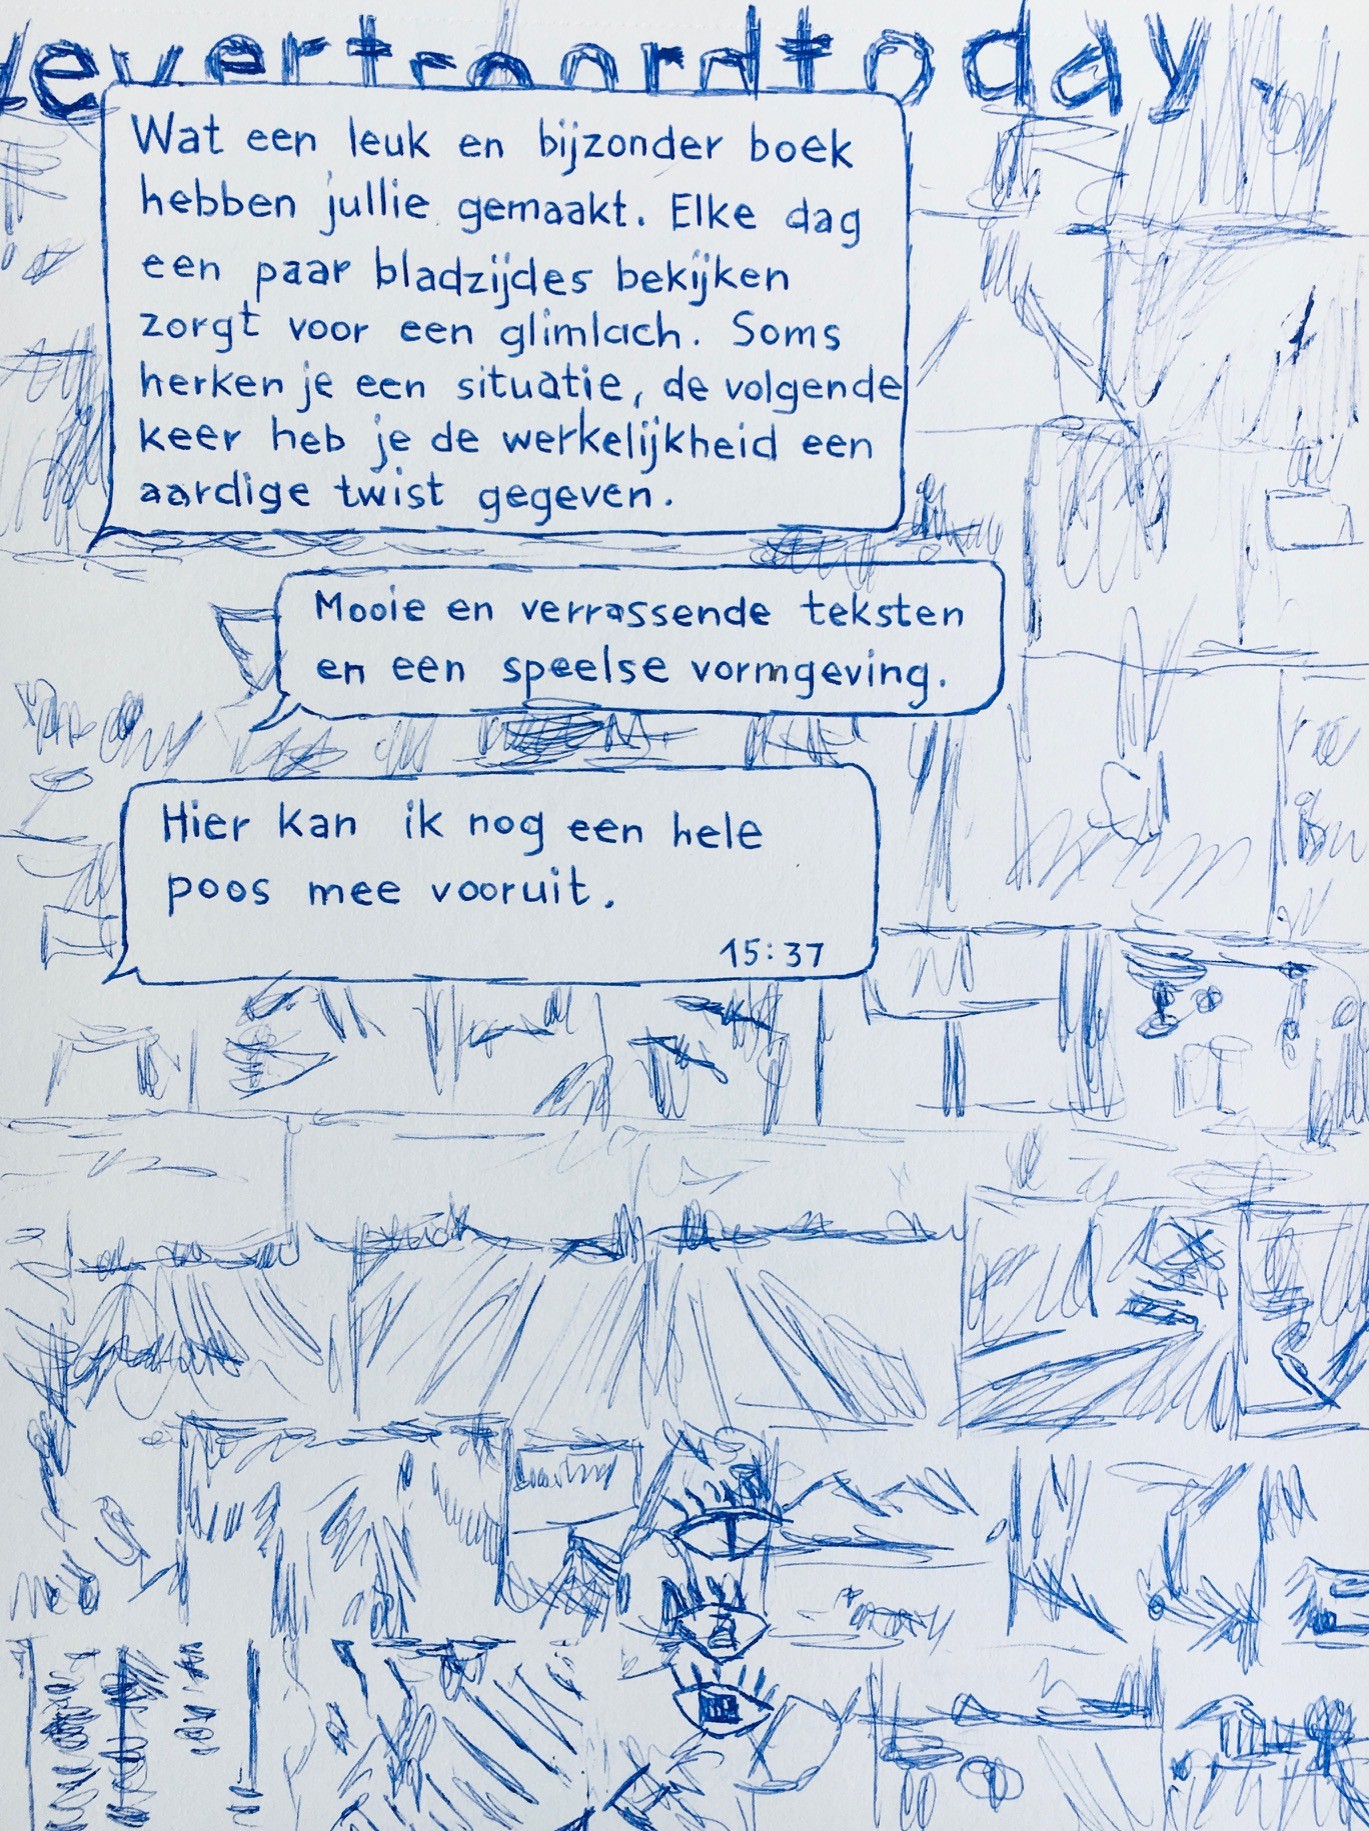 Wat een leuk en bijzonder boek
hebben jullie gemaakt. Elke dag
een paar bladzijdes bekijken
zorgt voor een glimlach. Soms
herken je een situatie, de volgende
keer heb je de werkelijkheid een
aardige twist gegeven.
Mooie en verrassende teksten
en een speelse vormgeving.
Hier kan ik nog een hele
poos mee vooruit.
15:37